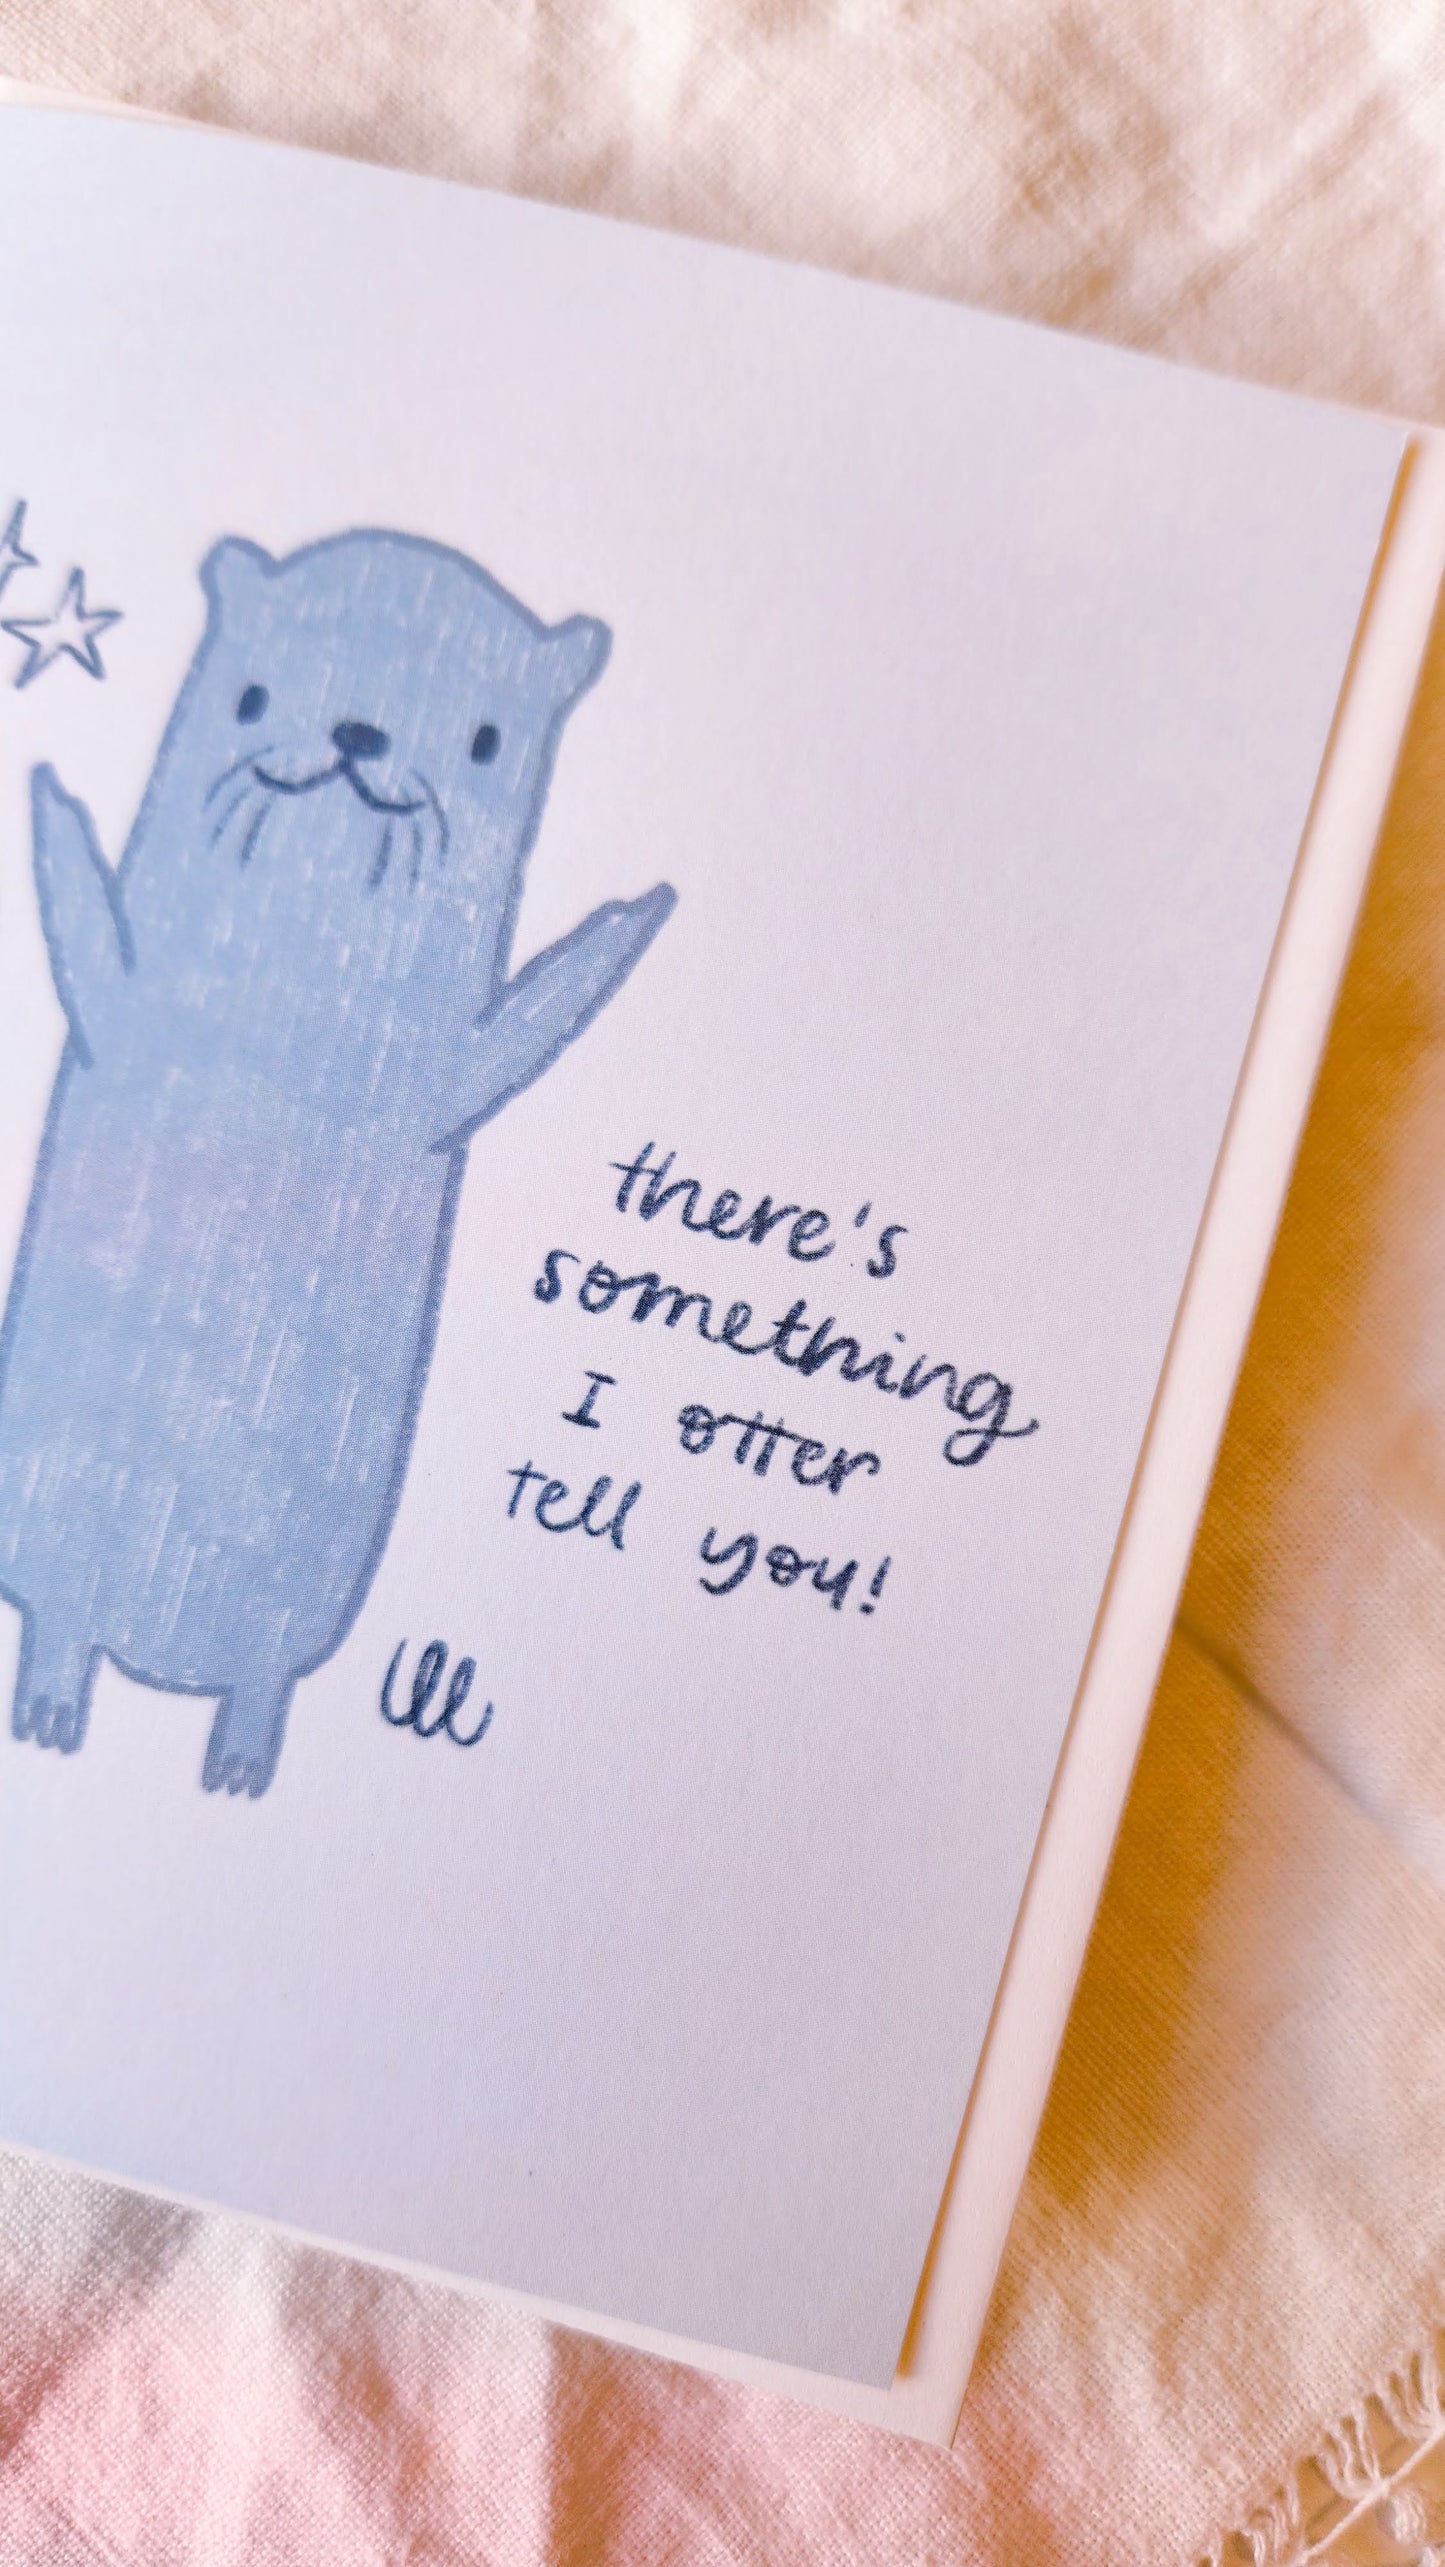 there's
something
I otter
tell you!